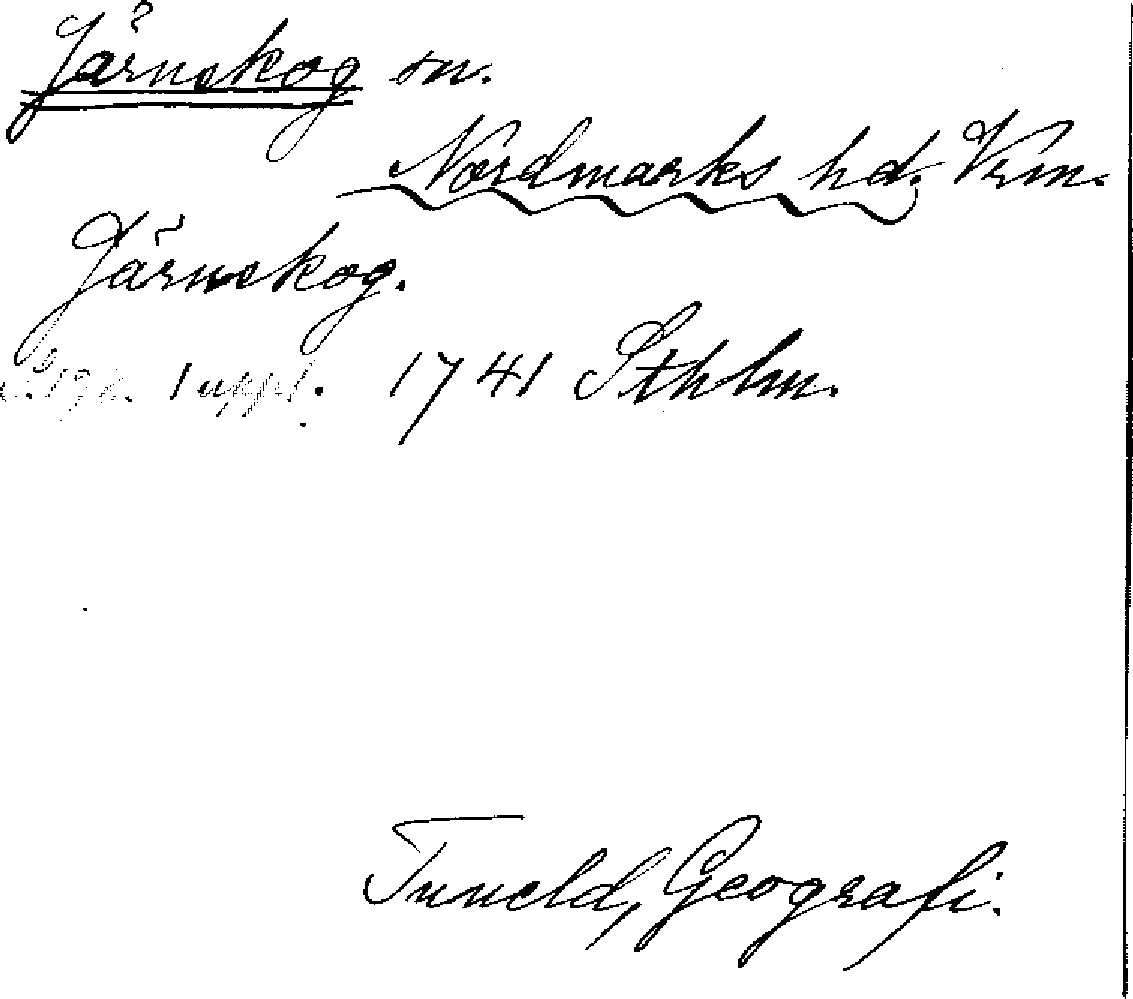 Järnskog sn.
Nordmarks hd. Vrm.
Järnskog.
S. 192. 1 uppl. 1741 Sthlm.
Tuneld, Geografi.